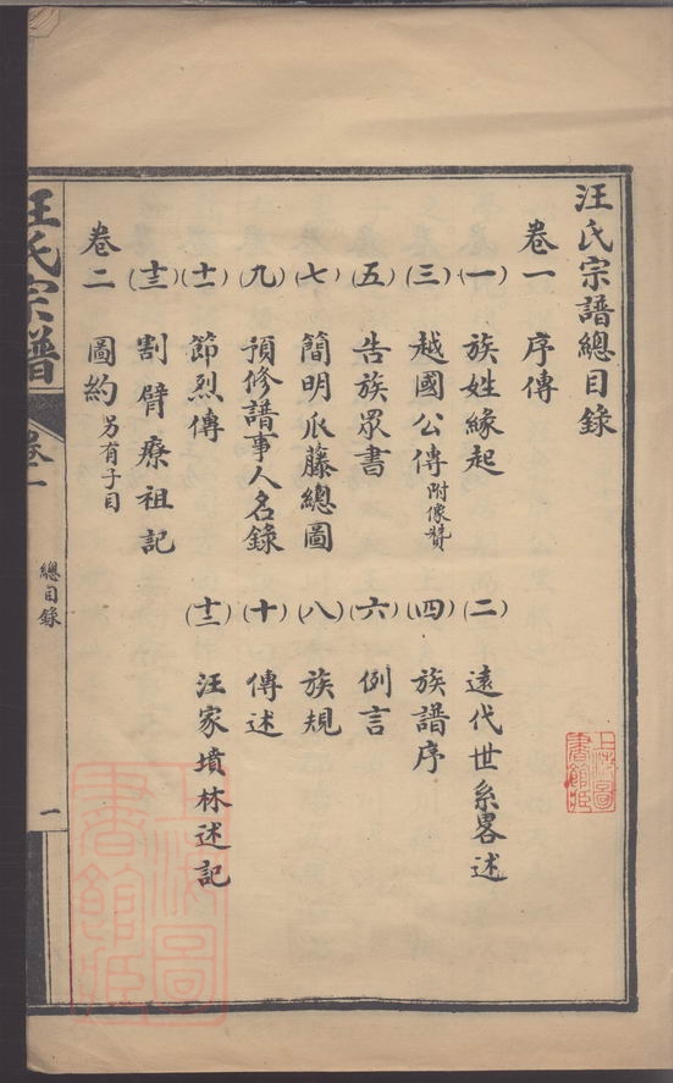 汪氏宗譜總目錄
卷一 序傳
(一) 族姓緣起 (二) 遠代世系畧述
(三) 越國公傳附像贊 (四) 族譜序
(五) 告族眾書 (六) 例言
(七) 簡明瓜藤總圖 (八) 族規
(九) 預修譜事人名錄 (十) 傳述
(十一) 節烈傳 (十二) 汪家墳林述記
(十三) 割臂療祖記
卷二 圖約另有子目
汪氏宗譜 卷一 總目錄 一
上海圖書館
上海圖書館